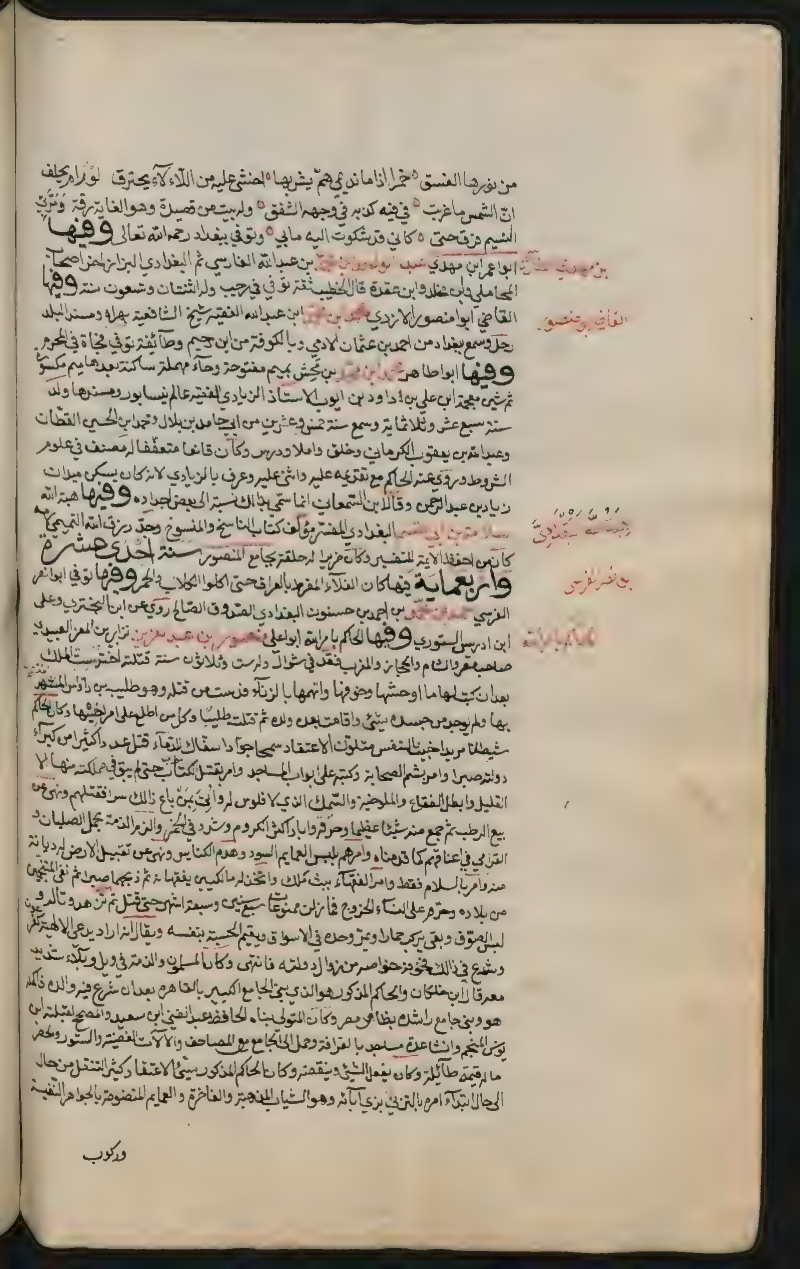 من نورها الغسق خمرا اذا ما نديمي همّ يشربها اخشى عليه من اللألاء يحترق لو رام يحلف
انّ الشمس ما غربت في فيه كذبه في وجهه الشفق وله بيت من قصيدة وهو الغاية رقة
النسيم فرق حتى كاني قد شكوت اليه مابي وتوفي ببغداد رحمه الله تعالى وفيها
ابو عمر ابن مهدي عبد الواحد بن محمد بن عبد الله الفارسي ثم البغدادي البزاز اخر اصحاب
المحاملي وابن مخلد وابن عقدة قال الخطيب ثقة توفي في رجب وله اثنتان وتسعون سنة وفيها
القاضي ابو منصور الازدي محمد بن محمد ابن عبد الله الفقيه شيخ الشافعية بهراة ومسند البلد
رحل وسمع ببغداد من احمد بن عثمان الادمي وبالكوفة من ابن دحيم وطائفة توفي فجاة في المحرم
وفيها ابو طاهر محمد ابن محمد بن محمش بميم مفتوحة وحاء مهملة ساكنة بعدها ميم مكسورة
ثم شين معجمة ابن علي بن داود بن ايوب الاستاذ الزيادي الفقيه عالم نيسابور ومسندها ولد
سنة سبع عشر وثلاثماية وسمع سنة خمس وعشرين من ابي حامد بن بلال ومحمد ابن الحسين القطان
وعبد الله بن يعقوب الكرماني وخلق واملا ودرس وكان قانعا متعففا له مصنف في علوم
الشروط وروى عنه الحاكم مع تقدمه عليه واثنى عليه وعرف بالزيادي لانه كان يسكن ميدان
زياد بن عبد الرحمن وقال ابن السمعاني انما سمي بذلك نسبة الى بعض اجداده وفيها هبة الله
سلامة بن ابي القسم البغدادي المفسر مؤلف كتاب الناسخ والمنسوخ وجد رزق الله التميمي لامه
كان من احفظ الايمة للتفسير وكان ضريرا له حلقة بجامع المنصور سنة احدى عشرة
واربعماية فيها كان الغلاء المفرط بالعراق حتى اكلوا الكلاب والحمر وفيها توفي ابو نصر
النرسي احمد بن محمد بن احمد بن حسنون البغدادي الصدوق الصالح روى عن ابن البختري وعلى
ابن ادريس الستوري وفيها الحاكم بامر الله ابو علي منصور بن عبد العزيز نزار بن المعز العبيدي
صاحب مصر والشام والحجاز والمغرب فقد في شوال وله ست وثلاثون سنة قتلته اخته ست الملك
بعد ان كتب لها ما اوحشها وخوفها واتهمها بالزناء فدست من قتله وهو طليب بن دواس المتهم
بها ولم يوجد من جسده شيئ واقامت بعده ولده ثم قتلت طليبا وكل من اطلع على امر اخيها وكان الحاكم
شيطانا مريدا خبيث النفس متلون الاعتقاد سمحا جوادا سفاك الدماء قتل عددا كثيرا من كبراء
دولته صبرا وامر بشم الصحابة وكتبه على ابواب المساجد وامر بقتل الكلاب حتى لم يبق في مملكته منها الا
القليل وابطل الفقاع والملوخية والسمك الذي لا فلوس له واتى بمن باع ذلك سرا فقتلهم ونهى عن
بيع الرطب ثم جمع منه شيئا عظيما وحرقه واباد اكثر الكروم وشدد في الخمر والزم الذمة بحمل الصلبان
القرامي في اعناقهم كما قدمناه وامرهم بلبس العمايم السود وهدم الكنايس ونهى عن تقبيل الارض له ديانة
منه وامر بالسلام فقط وامر الفقهاء ببث مذهب مالك واتخذ له مالكيين يفقهانه ثم ذبحهما صبرا ثم نفى المنجمين
من بلاده وحرم على النساء الخروج فما زلن ممنوعات سبع سنين وسبعة اشهر حتى قتل ثم تزهد وتاله و
لبس الصوف وبقي يركب حمارا ويمر وحده في الاسواق ويقيم الحسبة بنفسه ويقال انه اراد يدعي الالهية كفرعون
وشرع في ذلك فخوفه خواصه من زوال دولته فانتهى وكان المسلمون والذمة في ويل وبلاء شديد
معه قال ابن خلكان والحاكم المذكور هو الذي بنى الجامع الكبير بالقاهرة بعد ان شرع فيه والده فاكمله
هو وبنى جامع راشدة بظاهر مصر وكان المتولي بناه الحافظ عبد الغني ابن سعيد والمصحح لقبلته ابن
يونس المنجم وانشا عدة مساجد بالقرافة وحمل الى الجامع من المصاحف والالات الفضية والستور والحصر
ما له قيمة طائلة وكان يفعل الشيئ وينقضه وكان الحاكم المذكور سيئ الاعتقاد كثير التنقل من حال
الى حال ابتداء امره بالتزيي بزي آبائه وهو الثياب المذهبة والفاخرة والعمايم المنضومة بالجواهر النفيسة
وركوب
القاضي ابو منصور
ابو نصر النرسي
الحاكم بامر الله